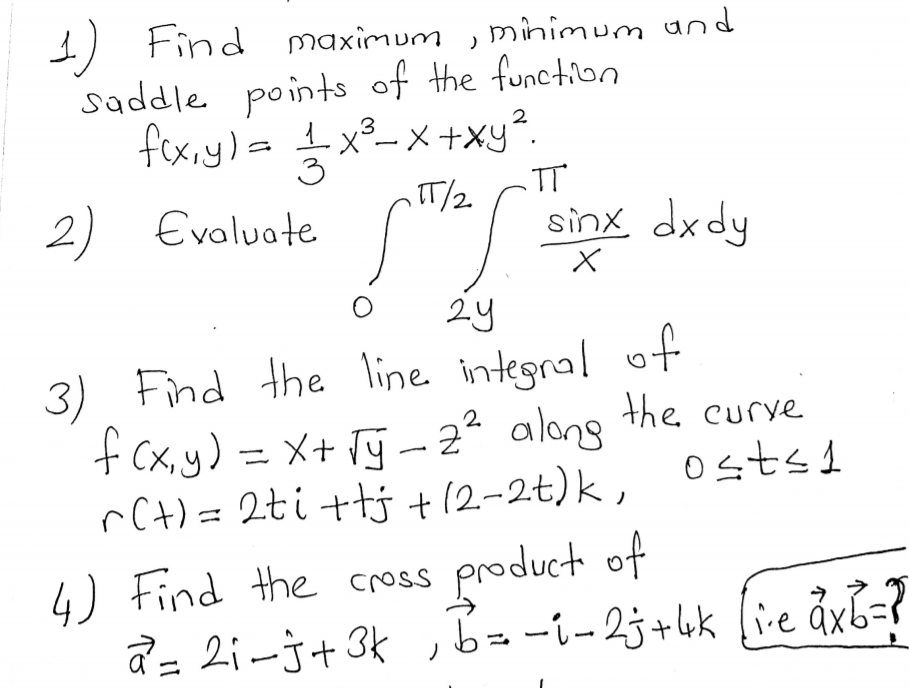 1) Find maximum, minimum and
saddle points of the function
f(x,y) = 1/3 x³ - x + xy².
2) Evaluate ∫₀^(π/2) ∫_(2y)^π sinx/x dxdy
3) Find the line integral of
f(x,y) = x + √y - z² along the curve
r(t) = 2ti + tj + (2-2t)k, 0≤t≤1
4) Find the cross product of
a⃗ = 2i - j + 3k, b⃗ = -i - 2j + 4k (i.e a⃗xb⃗=?